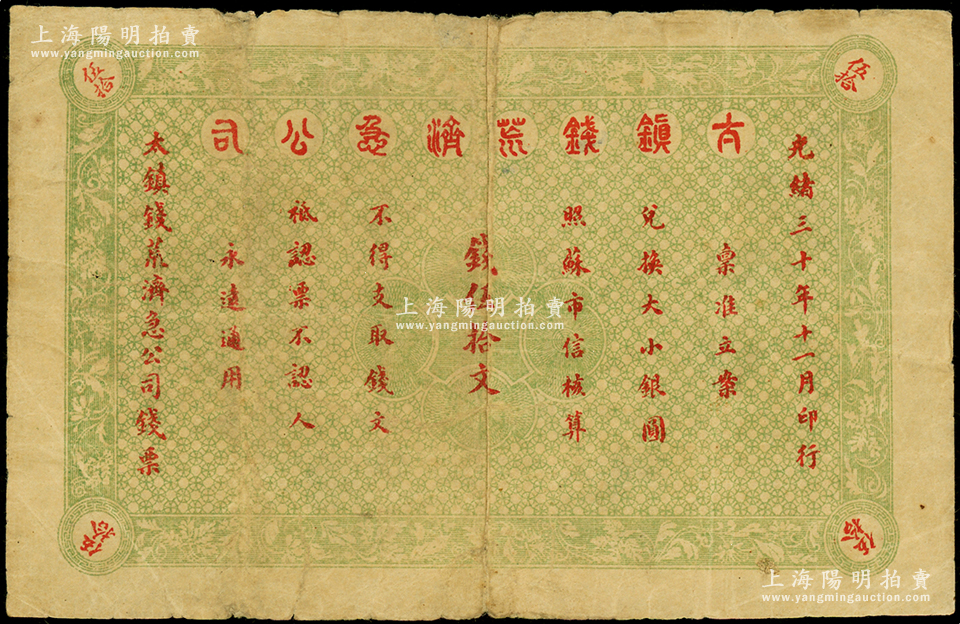 上海陽明拍賣
www.yangmingauction.com
伍拾
伍拾
太鎮錢荒濟急公司
光緒三十年十一月印行
稟准立案
兌換大小銀圓
照蘇市信核算
錢伍拾文
不得支取錢文
祗認票不認人
永遠通用
太鎮錢荒濟急公司錢票
上海陽明拍賣
www.yangmingauction.com
伍拾
伍拾
上海陽明拍賣
www.yangmingauction.com